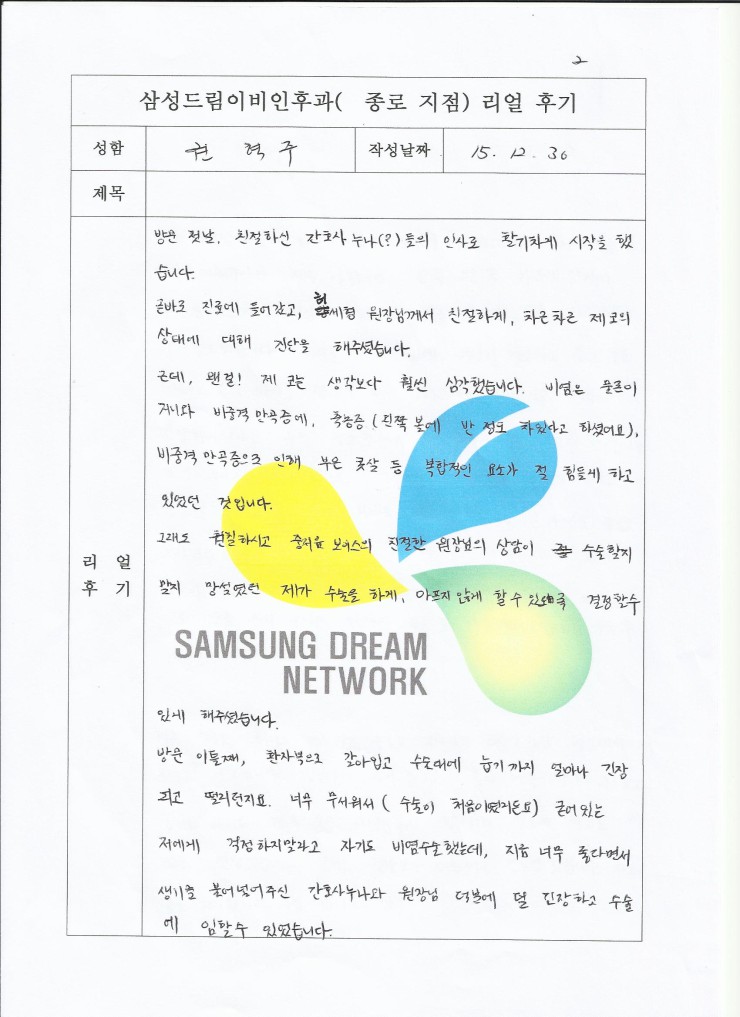 2
삼성드림이비인후과( 종로 지점) 리얼 후기
성함 권 혁 주 작성날짜 15. 12. 30
제목
리 얼
후 기
방문 첫날, 친절하신 간호사 누나(?)들의 인사로 활기차게 시작을 했
습니다.
곧바로 진료에 들어갔고, 허세형 원장님께서 친절하게, 차근차근 제 코의
상태에 대해 진단을 해주셨습니다.
근데, 웬걸! 제 코는 생각보다 훨씬 심각했습니다. 비염은 물론이
거니와 비중격만곡증에, 축농증 (왼쪽 볼에 반 정도 차있다고 하셨어요),
비중격만곡증으로 인해 부은 콧살 등 복합적인 요소가 절 힘들게 하고
있었던 것입니다.
그래도 현실하시고 중저음 보이스의 친절한 원장님의 상담이 수술할지
말지 망설였던 제가 수술을 하게, 아프지 않게 할 수 있게끔 결정할수
SAMSUNG DREAM
NETWORK
있게 해주셨습니다.
방문 이틀째, 환자복으로 갈아입고 수술대에 눕기까지 얼마나 긴장
되고 떨리던지요. 너무 무서워서 ( 수술이 처음이였거든요) 굳어있는
저에게 걱정하지말라고 자기도 비염수술했는데, 지금 너무 좋다면서
생기를 불어넣어주신 간호사누나와 원장님 덕분에 덜 긴장하고 수술
에 임할수 있었습니다.